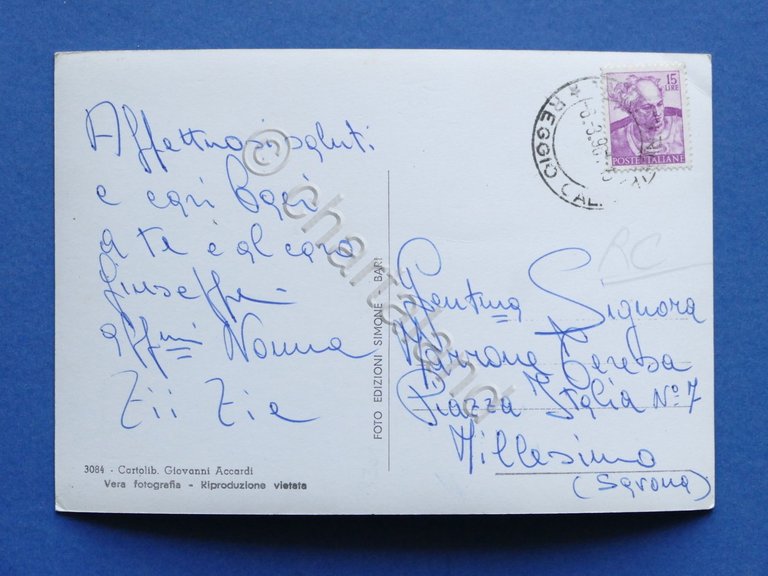 Affettuosi saluti
e cari baci
a te e al caro
Giuseppe -
affmi Nonna
Zii Zie
3084 - Cartolib. Giovanni Accardi
Vera fotografia - Riproduzione vietata
FOTO EDIZIONI SIMONE - BARI
15
LIRE
POSTE ITALIANE
* REGGIO CAL.
RC
Gent.ma Signora
Marrone Teresa
Piazza Italia No 7
Millesimo
(Savona)
© chartaland